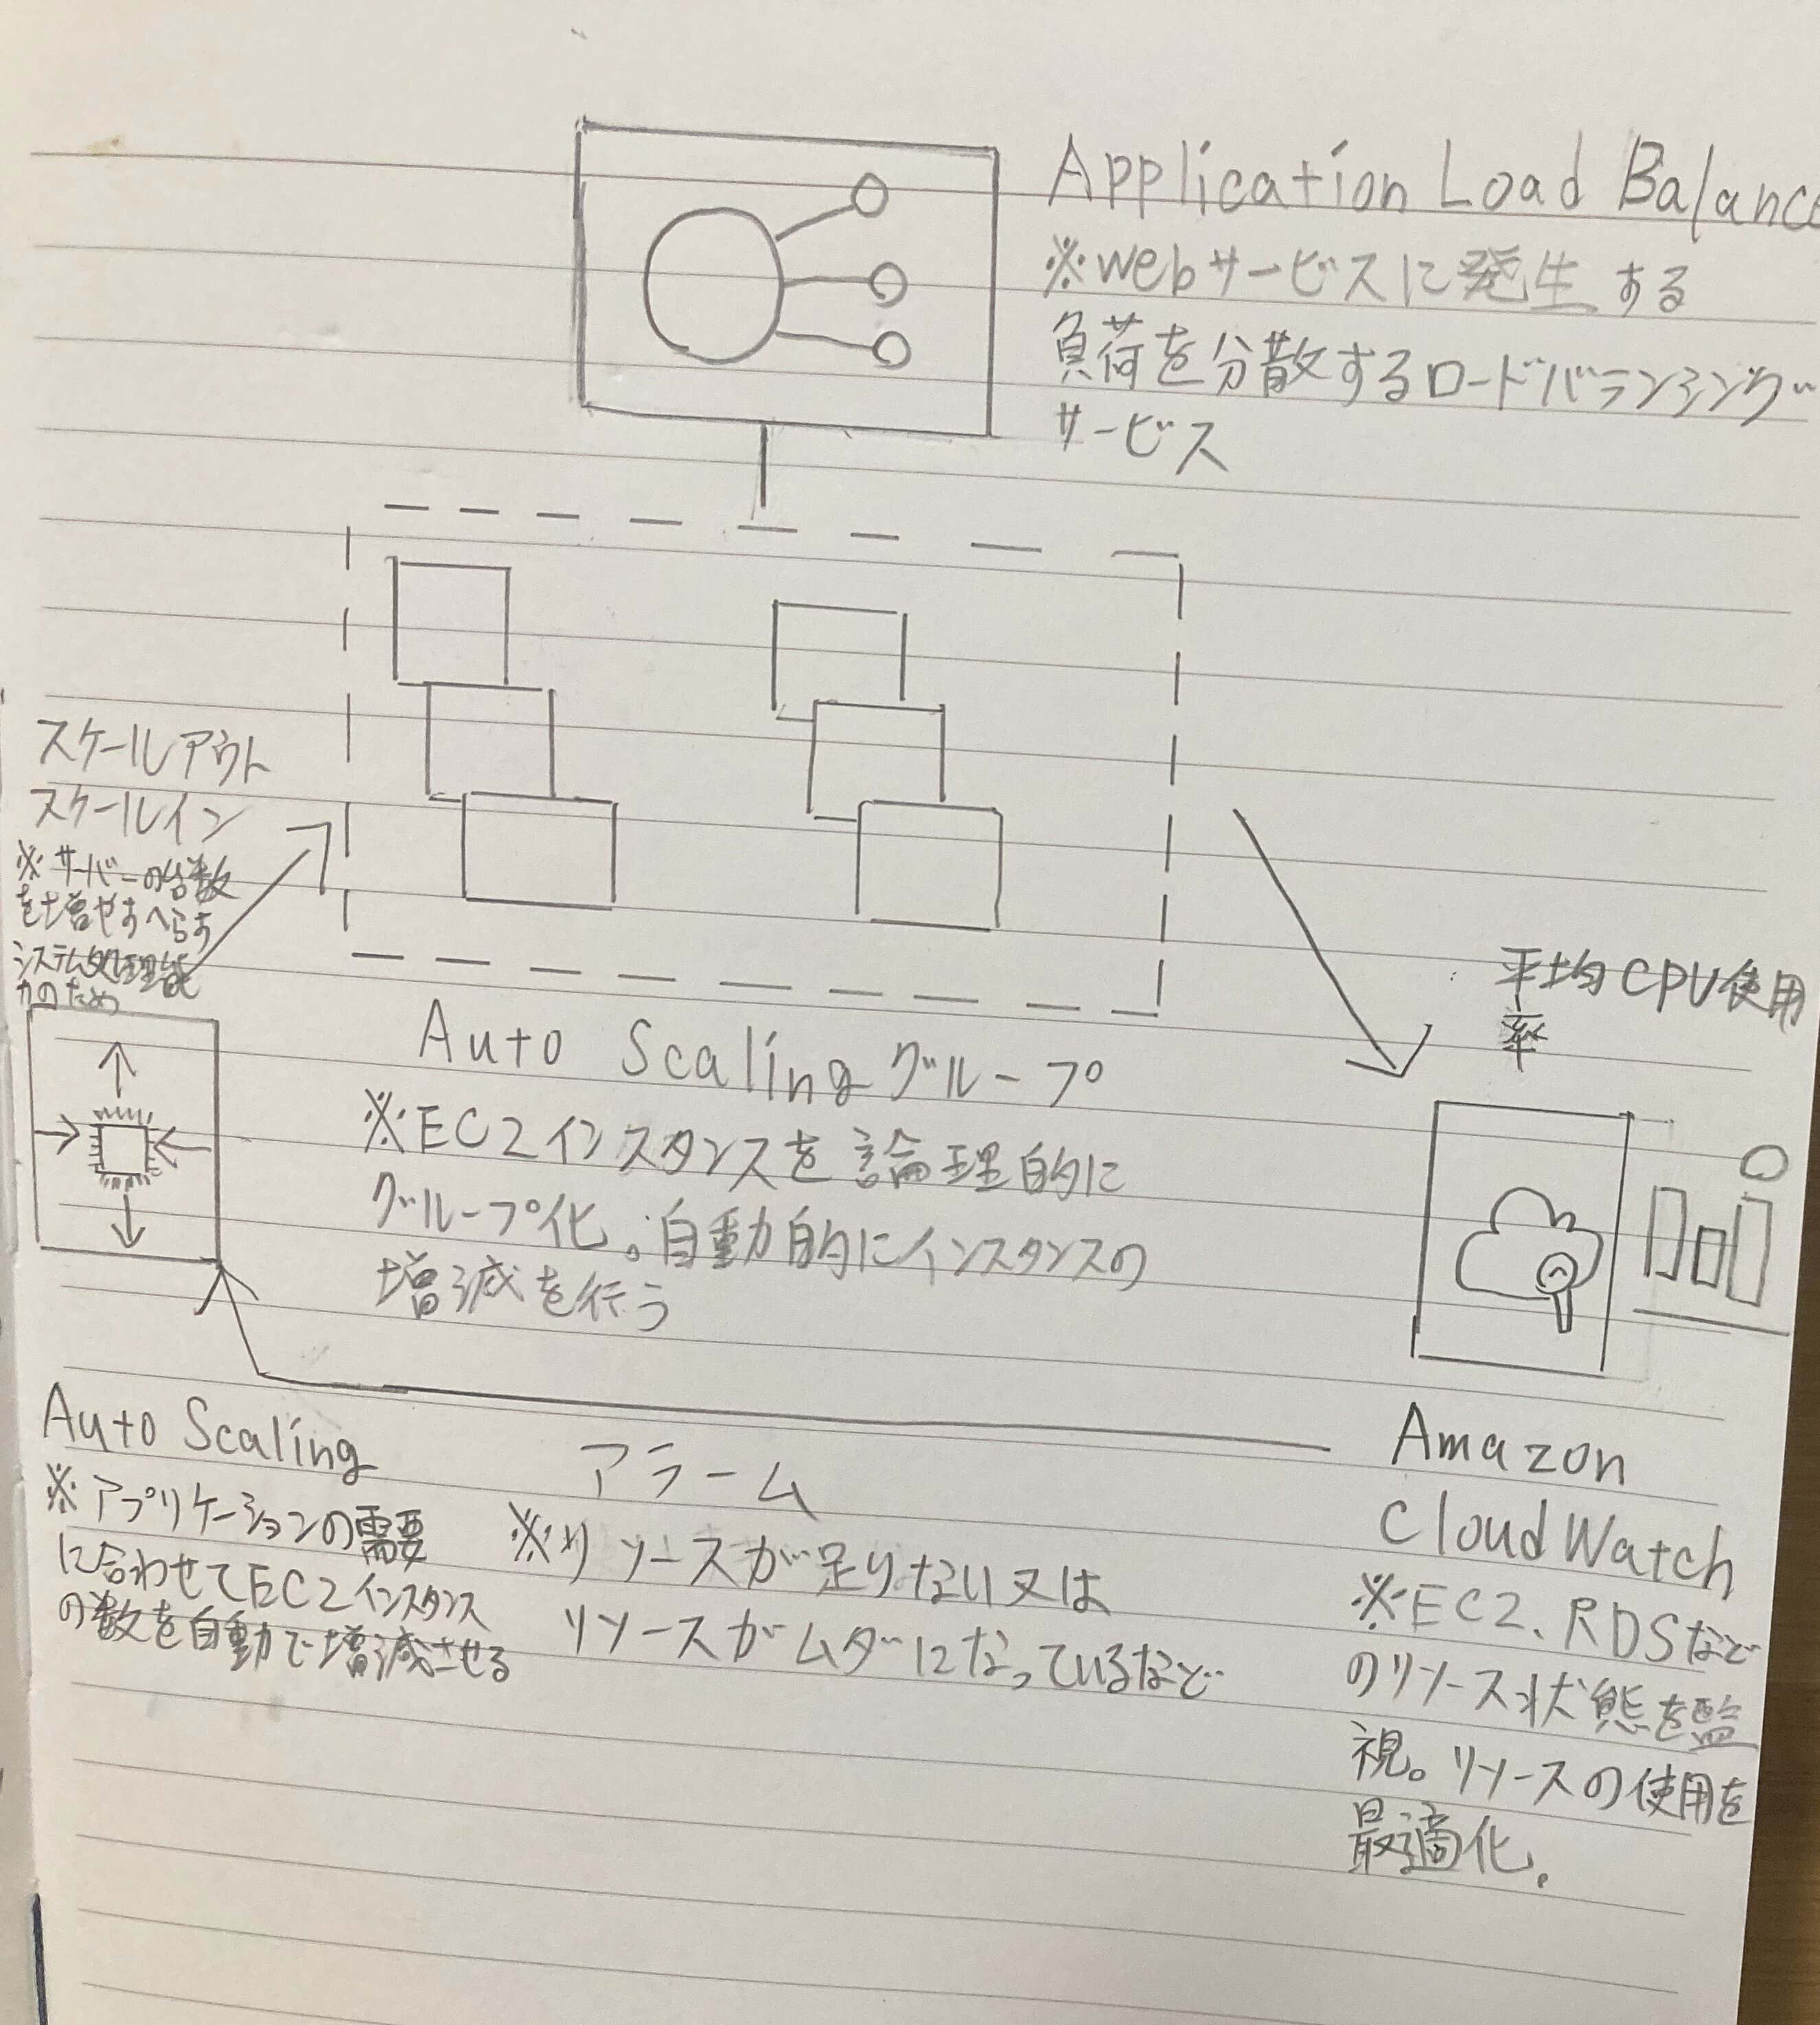 Application Load Balance
※webサービスに発生する
負荷を分散するロードバランシング
サービス
スケールアウト
スケールイン
※サーバーの台数
を増やすへらす
システム処理能
力のため
平均CPU使用
率
Auto Scalingグループ
※EC2インスタンスを論理的に
グループ化。自動的にインスタンスの
増減を行う
Auto Scaling
※アプリケーションの需要
に合わせてEC2インスタンス
の数を自動で増減させる
アラーム
※リソースが足りない又は
リソースがムダになっているなど
Amazon
CloudWatch
※EC2、RDSなど
のリソース状態を監
視。リソースの使用を
最適化。